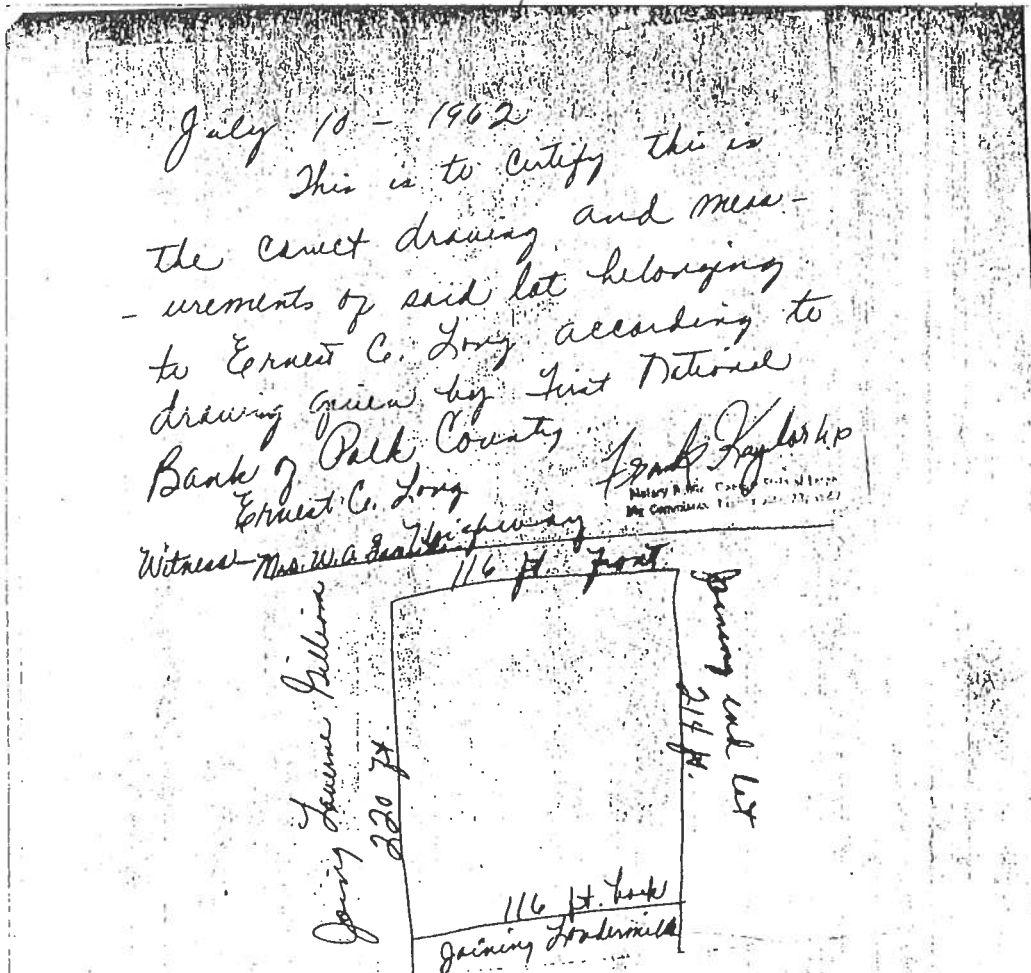 July 10 - 1962
This is to Certify this is
the correct drawing and meas-
-urements of said lot belonging
to Ernest C. Long according to
drawing given by First National
Bank of Polk County
Ernest C. Long
Frank Kaylor NP
Notary Public
My Commission
Witness - Mrs. W. A.
Highway
116 ft. Front
Joing Laverne Gilliam
220 ft.
Joining end lot
214 ft.
116 ft. back
Joining Loudermilk